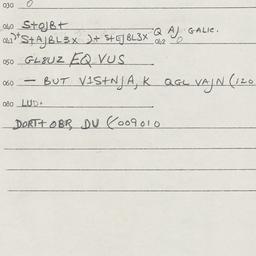 030 0
040 S+OJB+
041 S+AJBL3X )+ S+EJBL3X 042 Q AJ GALIC.
050 GL8UZ EQ VUS
060 — BUT V1S+NJA, K QGL VAJN (120
080 LUD.
DORT+ OBR DU (009010